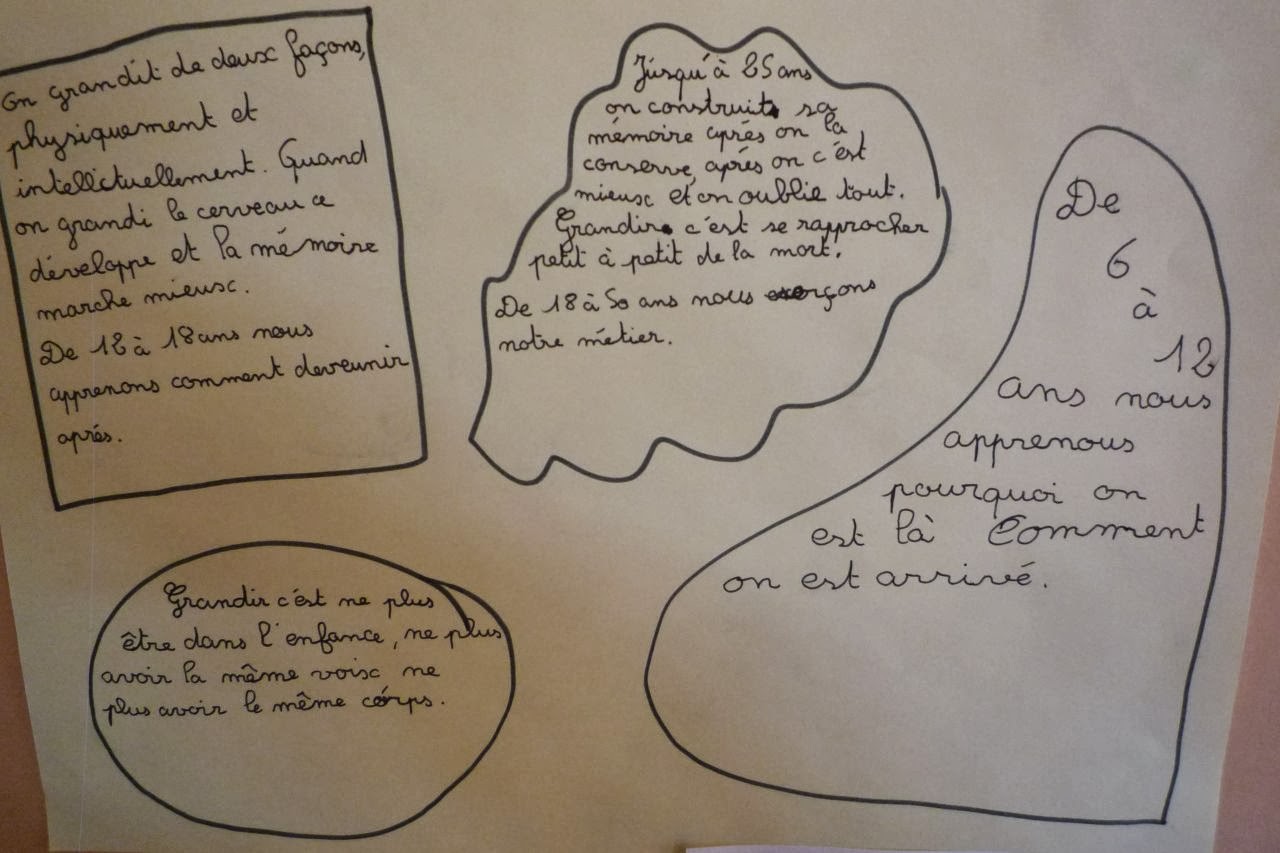 On grandit de deux façons,
physiquement et
intellictuellement. Quand
on grandi le cerveau ce
développe et la mémoire
marche mieux.
De 12 à 18 ans nous
apprenons comment deveunir
aprés.
Jusqu'à 25 ans
on construit sa
mémoire aprés on la
conserve, aprés on c'est
mieux et on oublie tout.
Grandir c'est se rapprocher
petit à petit de la mort.
De 18 à 50 ans nous
notre métier.
De
6
à
12
ans nous
apprenous
pourquoi on
est là Comment
on est arrivé.
Grandir c'est ne plus
être dans l'enfance, ne plus
avoir la même voix ne
plus avoir le même corps.